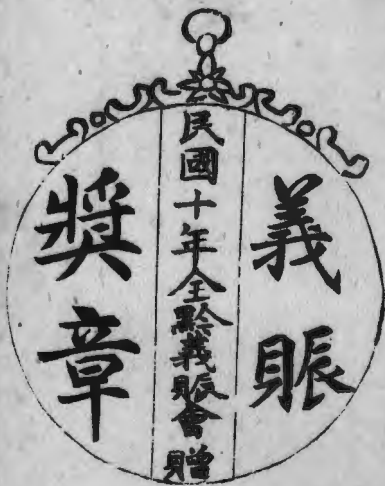 義賑
民國十年全黔義賑會贈
獎章